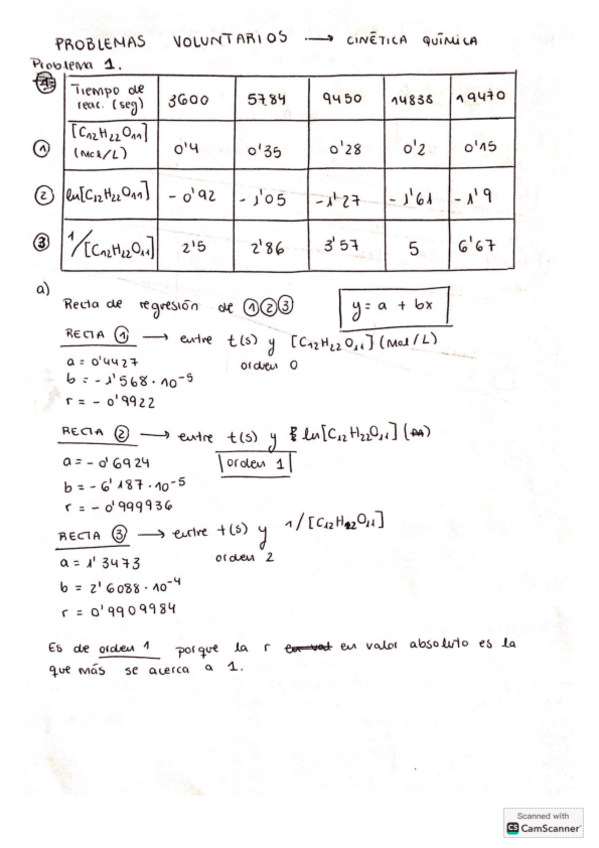 PROBLEMAS VOLUNTARIOS → CINÉTICA QUÍMICA
Problema 1.
Tiempo de reac. (seg) 3600 5784 9450 14836 19470
① [C12H22O11] (Mol/L) 0'4 0'35 0'28 0'2 0'15
② ln[C12H22O11] -0'92 -1'05 -1'27 -1'61 -1'9
③ 1/[C12H22O11] 2'5 2'86 3'57 5 6'67
a)
Recta de regresión de ①②③ y = a + bx
RECTA ① → entre t(s) y [C12H22O11] (Mol/L)
a = 0'4427 orden 0
b = -1'568 · 10⁻⁵
r = -0'9922
RECTA ② → entre t(s) y ln[C12H22O11]
a = -0'6924 orden 1
b = -6'187 · 10⁻⁵
r = -0'999936
RECTA ③ → entre t(s) y 1/[C12H22O11]
a = 1'3473 orden 2
b = 2'6088 · 10⁻⁴
r = 0'9909984
Es de orden 1 porque la r en valor absoluto es la
que más se acerca a 1.
Scanned with
CS CamScanner